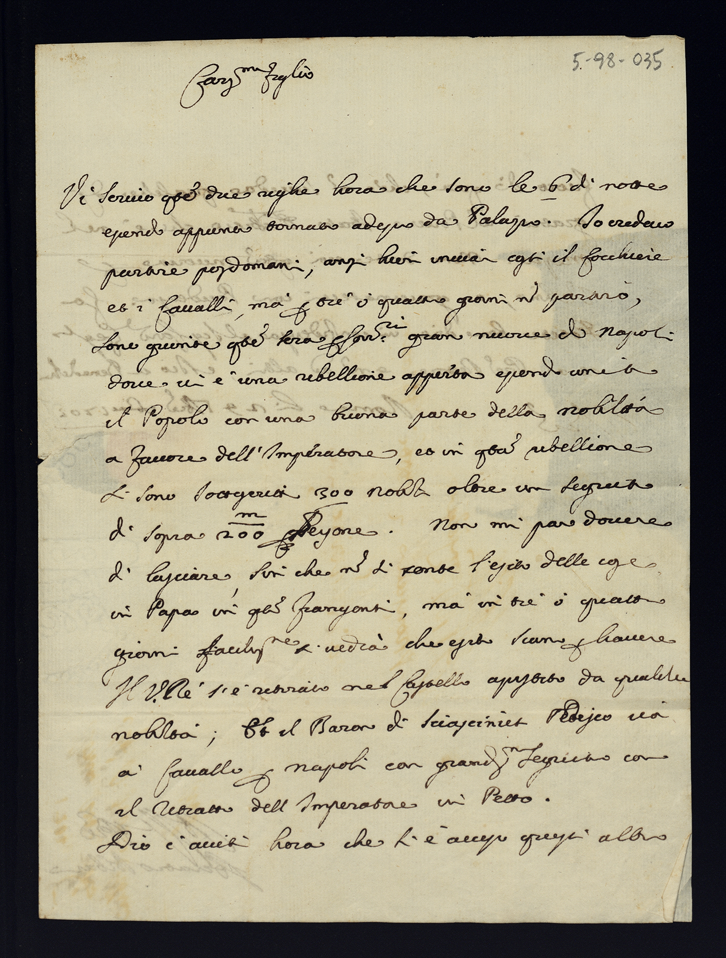 5-98-035
Car.mo figlio
Vi scrivo q.te due righe hora che sono le 6 di notte
essendo appunto tornato adesso da Palazzo. Io credevo
partire posdomani, anzi hieri inviai costì il Cocchiere
et i Cavalli, mà p tre ò quattro giorni n partirò,
sono giunte q.ta sera gran nuove di Napoli
dove vi è una rebellione apperta essendo unito
il Popolo con una buona parte della nobiltà
a favore dell'Imperatore, et in q.ta rebellione
vi sono 300 nobili oltre un seguito
di sopra 200 m Persone. Non mi par dovere
di lasciare, sin che n si l'esito delle cose
il Papa in q.ti frangenti, mà in tre ò quattro
giorni facilm.te si vedrà che esito siano p havere
Il V.Rè s'è ritirato nel Castello assistito da qualche
nobiltà; Et il Baron di Tedesco và
à Cavallo p napoli con grandiss.o seguito con
il ritratto dell'Imperatore in Petto.
Dio ci aiuti hora che si è acceso questo altro